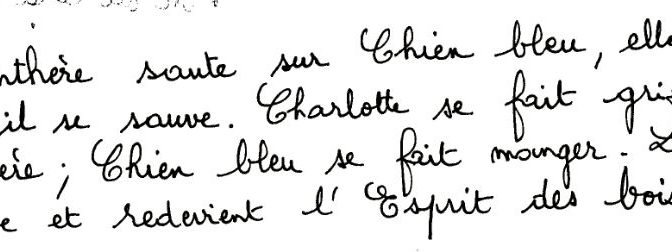 nthère saute sur Chien bleu, elle
il se sauve. Charlotte se fait grif
ère ; Chien bleu se fait manger.
e et redevient l'Esprit des bois